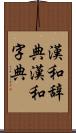 漢和辞
典漢和
字典